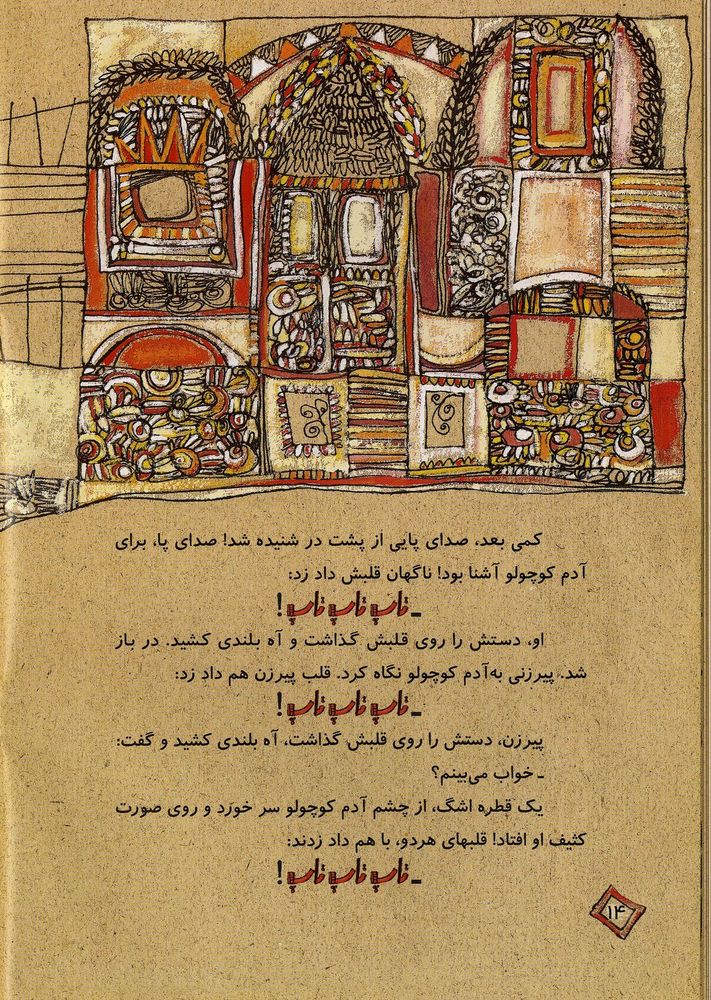 کمی بعد، صدای پایی از پشت در شنیده شد! صدای پا، برای
آدم کوچولو آشنا بود! ناگهان قلبش داد زد:
ـ تاپ تاپ تاپ !
او، دستش را روی قلبش گذاشت و آه بلندی کشید. در باز
شد. پیرزنی به‌آدم کوچولو نگاه کرد. قلب پیرزن هم داد زد:
ـ تاپ تاپ تاپ !
پیرزن، دستش را روی قلبش گذاشت، آه بلندی کشید و گفت:
ـ خواب می‌بینم؟
یک قطره اشگ، از چشم آدم کوچولو سر خورد و روی صورت
کثیف او افتاد! قلبهای هردو، با هم داد زدند:
ـ تاپ تاپ تاپ !
۱۴